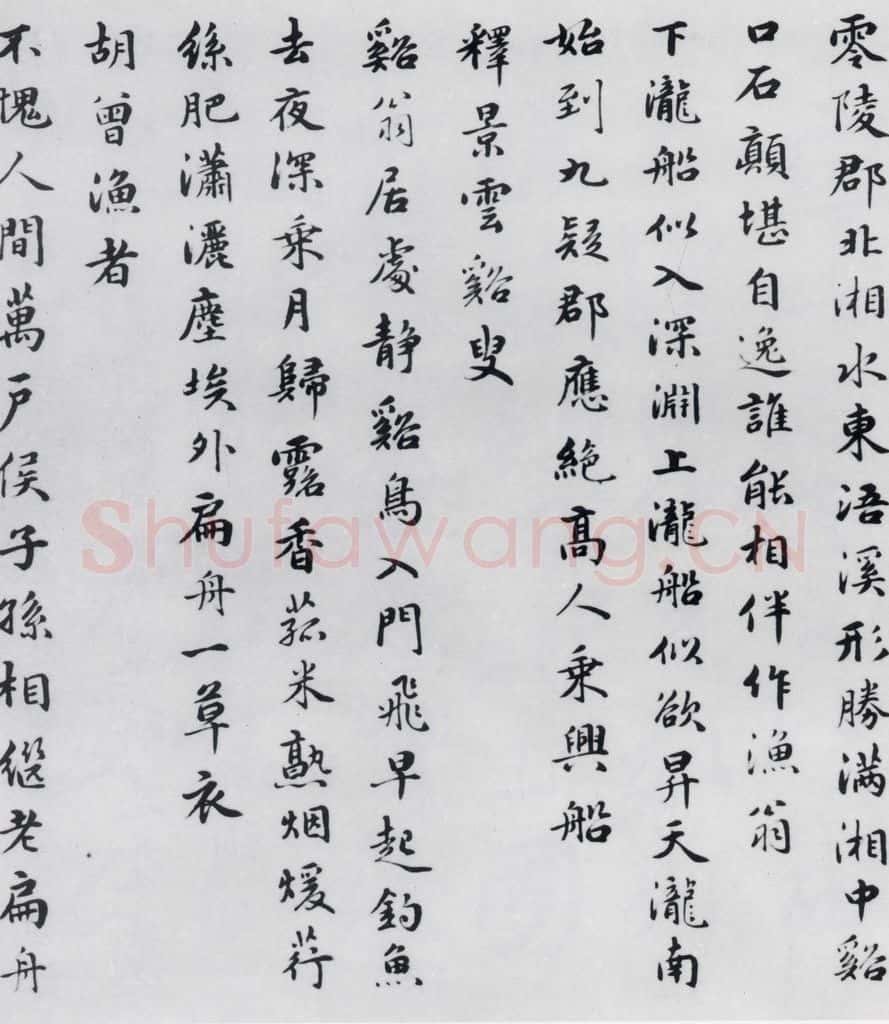 零陵郡北湘水東浯溪形勝滿湘中谿
口石顛堪自逸誰能相伴作漁翁
下瀧船似入深淵上瀧船似欲昇天瀧南
始到九疑郡應絕高人乘興船
釋景雲谿叟
谿翁居處靜谿鳥入門飛早起釣魚
去夜深乘月歸露香菰米熟烟煖荇
絲肥瀟灑塵埃外扁舟一草衣
胡曾漁者
不愧人間萬戶侯子孫相繼老扁舟
Shufawang.CN